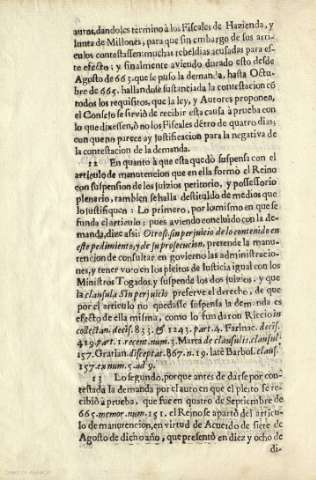 autos, dandoles termino à los Fiscales de Hazienda, y
Iunta de Millones, para que sin embargo de sus arti-
culos contestassen: muchas rebeldias acusadas para es-
te efecto; y finalmente aviendo durado esto desde
Agosto de 663. que se puso la demanda, hasta Octu-
bre de 665. hallandose sustanciada la contestacion cõ
todos los requisitos, que la ley, y Autores proponen,
el Consejo se sirviò de recibir esta causa à prueba con
lo que dixessen, ò no los Fiscales dẽtro de quatro dias;
con que no parece ay justificacion para la negativa de
la contestacion de la demanda.
12 En quanto à que esta quedò suspensa con el
articulo de manutencion que en ella formò el Reino
con suspension de los juizios petitorio, y possessorio
plenario, tambien se halla destituido de medios que
lo justifiquen: Lo primero, por lo mismo en que se
funda el articulo; pues aviendo concluido con la de-
manda, dize assi: Otrosi, sin perjuicio de lo contenido en
este pedimiento, y de su prosecucion, pretende la manu-
tencion de consultar en govierno las administracio-
nes, y tener voto en los pleitos de Iusticia igual con los
Ministros Togados, y suspende los dos juizios, y que
la clausula Sin perjuicio preserve el derecho, de que
por el articulo no quedasse suspensa la demanda es
efecto de ella misma, como lo fundaron Riccio in
collectan. decis. 833. & 1243. part. 4. Farinac. decis.
419. part. 1. recent. num. 3. Marta de clausulis, clausul.
157. Gratian. disceptat. 867. n. 19. latè Barbos. claus.
157. ex num. 5. ad 9.
13 Lo segundo, porque antes de darse por con-
testada la demanda por el auto en que el pleito se re-
cibiò à prueba, que fue en quatro de Septiembre de
665. memor. num. 151. el Reino se apartò del articu-
lo de manutencion, en virtud de Acuerdo de siete de
Agosto de dicho año, que presentò en diez y ocho de
di-